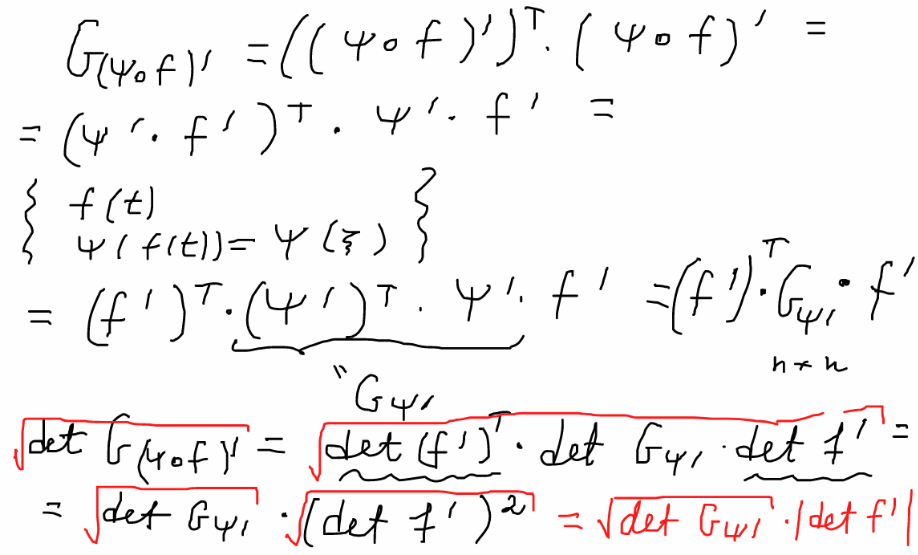 G_{(ψ∘f)'} = ((ψ∘f)')^T · (ψ∘f)' =
= (ψ' · f')^T · ψ' · f' =
{ f(t)
ψ(f(t)) = ψ(ξ) }
= (f')^T · (ψ')^T · ψ' · f' = (f')^T · G_{ψ'} · f'
n×n
" G_{ψ'}
√(det G_{(ψ∘f)'}) = √(det (f')^T · det G_{ψ'} · det f') =
= √(det G_{ψ'}) · √((det f')^2) = √(det G_{ψ'}) · |det f'|